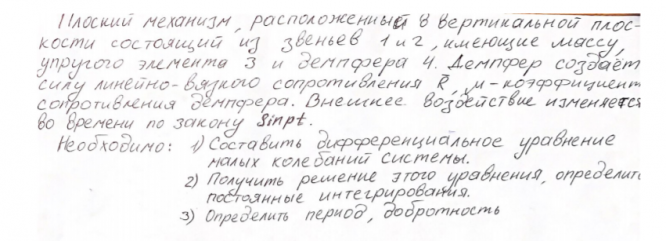 Плоский механизм, расположенный в вертикальной плос-
кости состоящий из звеньев 1 и 2, имеющие массу,
упругого элемента 3 и демпфера 4. Демпфер создаёт
силу линейно-вязкого сопротивления R, μ-коэффициент
сопротивления демпфера. Внешнее воздействие изменяется
во времени по закону Sinpt.
Необходимо: 1) Составить дифференциальное уравнение
малых колебаний системы.
2) Получить решение этого уравнения, определить
постоянные интегрирования.
3) Определить период, добротность